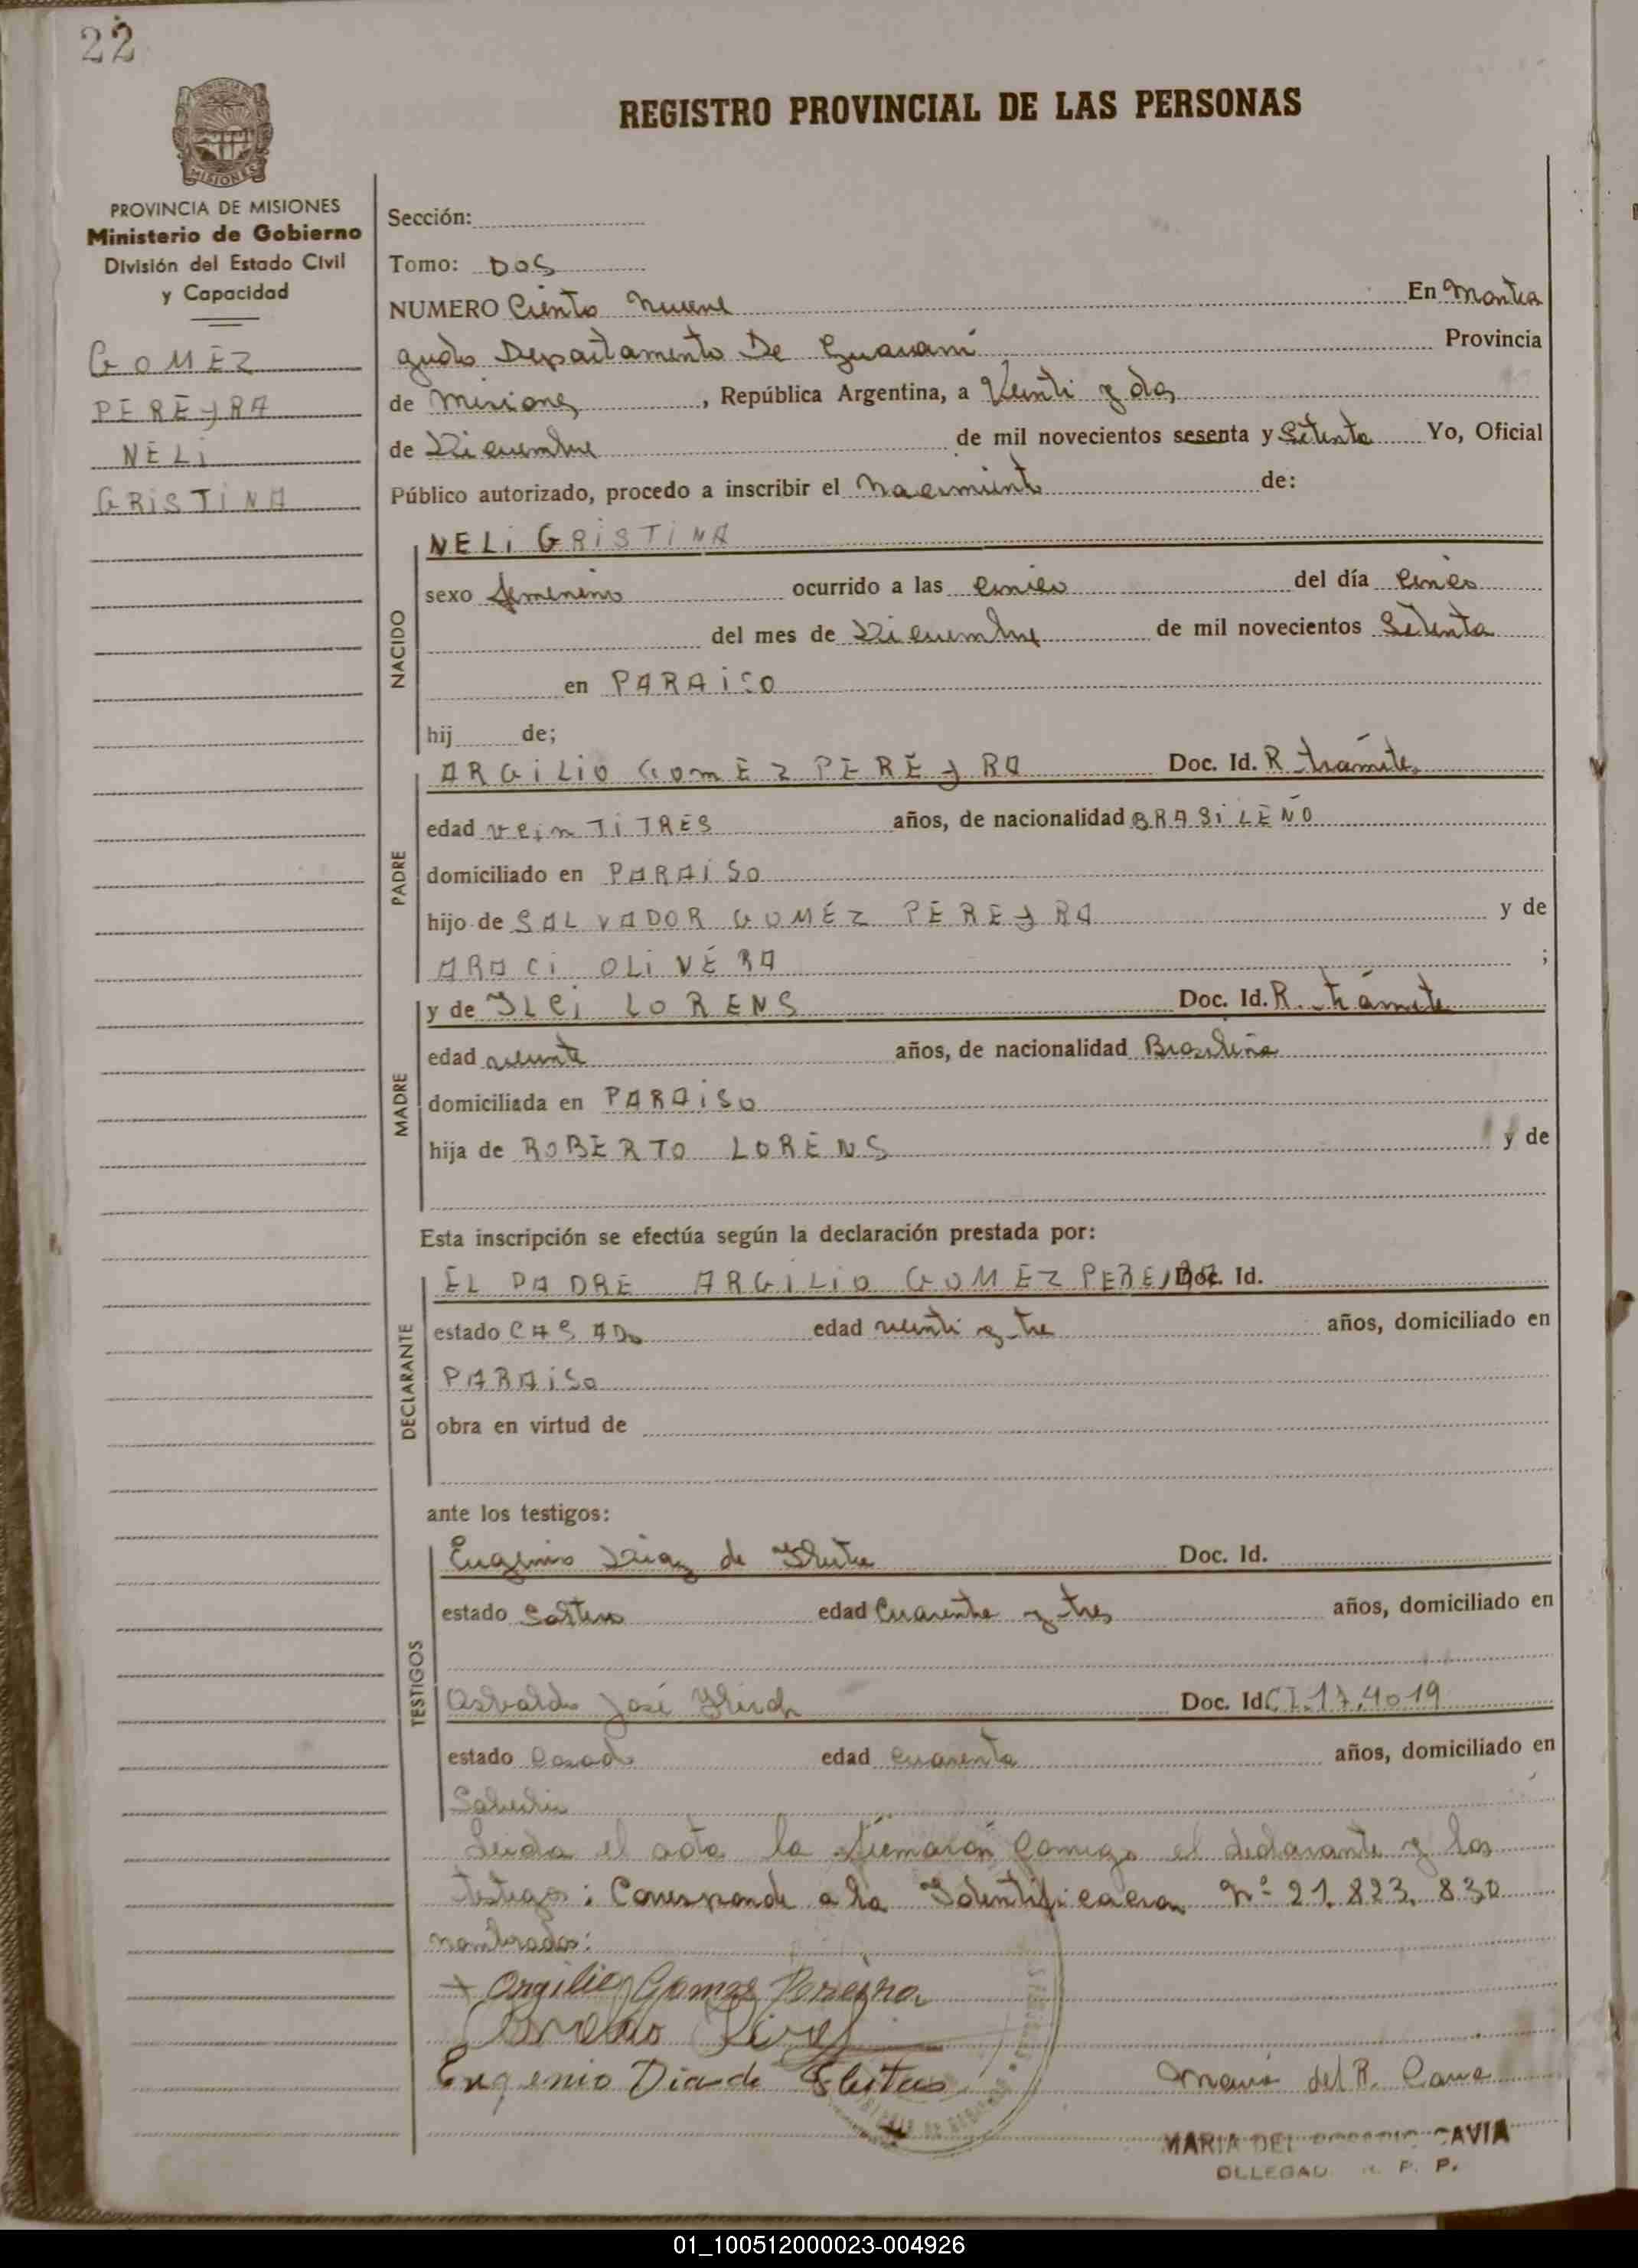 22
REGISTRO PROVINCIAL DE LAS PERSONAS
MISIONES
PROVINCIA DE MISIONES
Ministerio de Gobierno
División del Estado Civil
y Capacidad
GOMEZ
PEREYRA
NELi
GRiSTiNA
Sección:
Tomo: DOS
NUMERO Ciento Nueve En Montea
gudo Departamento De Guarani Provincia
de Misiones, República Argentina, a Veinti y dos
de Diciembre de mil novecientos sesenta y Setenta Yo, Oficial
Público autorizado, procedo a inscribir el Nacimiento de:
NACIDO
NELi GRiSTiNA
sexo femenino ocurrido a las cinco del día cinco
del mes de Diciembre de mil novecientos Setenta
en PARAiSO
hij de;
PADRE
ARGiLiO GOMEZ PEREyRA Doc. Id. R. trámite
edad veinTiTRES años, de nacionalidad BRASiLEÑO
domiciliado en PARAiSO
hijo de SALVADOR GOMÉZ PEREyRA y de
ARACi OLiVÉRA ;
MADRE
y de YLCi LORENS Doc. Id. R. trámite
edad veinte años, de nacionalidad Brasileña
domiciliada en PARAiSO
hija de ROBERTO LORENS y de
Esta inscripción se efectúa según la declaración prestada por:
DECLARANTE
EL PADRE ARGiLiO GOMEZ PEREyRA Doc. Id.
estado CASADO edad veinti y tre años, domiciliado en
PARAiSO
obra en virtud de
ante los testigos:
TESTIGOS
Eugenio Diaz de Doc. Id.
estado Soltero edad Cuarenta y tres años, domiciliado en
Osvaldo José Doc. Id C.I. 17.4019
estado Casado edad cuarenta años, domiciliado en
Leida el acta la firmarán Comigo el declarante y los
testigos: Corresponde a la Identificacion Nº 21.823.830
nombrados:
+ Argilio Gomez Pereyra
Eugenio Dia de
Maria del R. Cavia
MARIA DEL ROSARIO CAVIA
R. P. P.
01_100512000023-004926